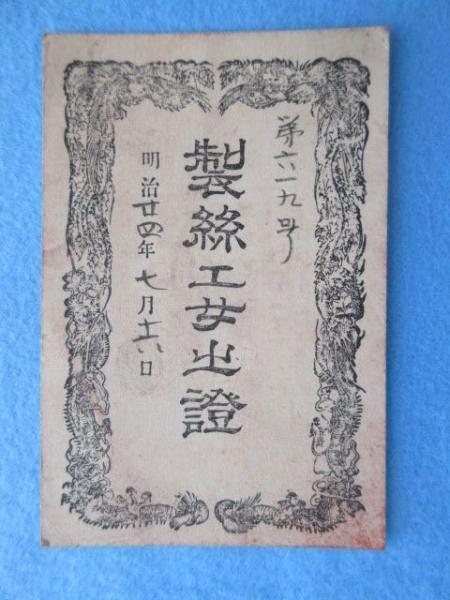 第六一九号
製絲工女之證
明治廿四年七月十六日